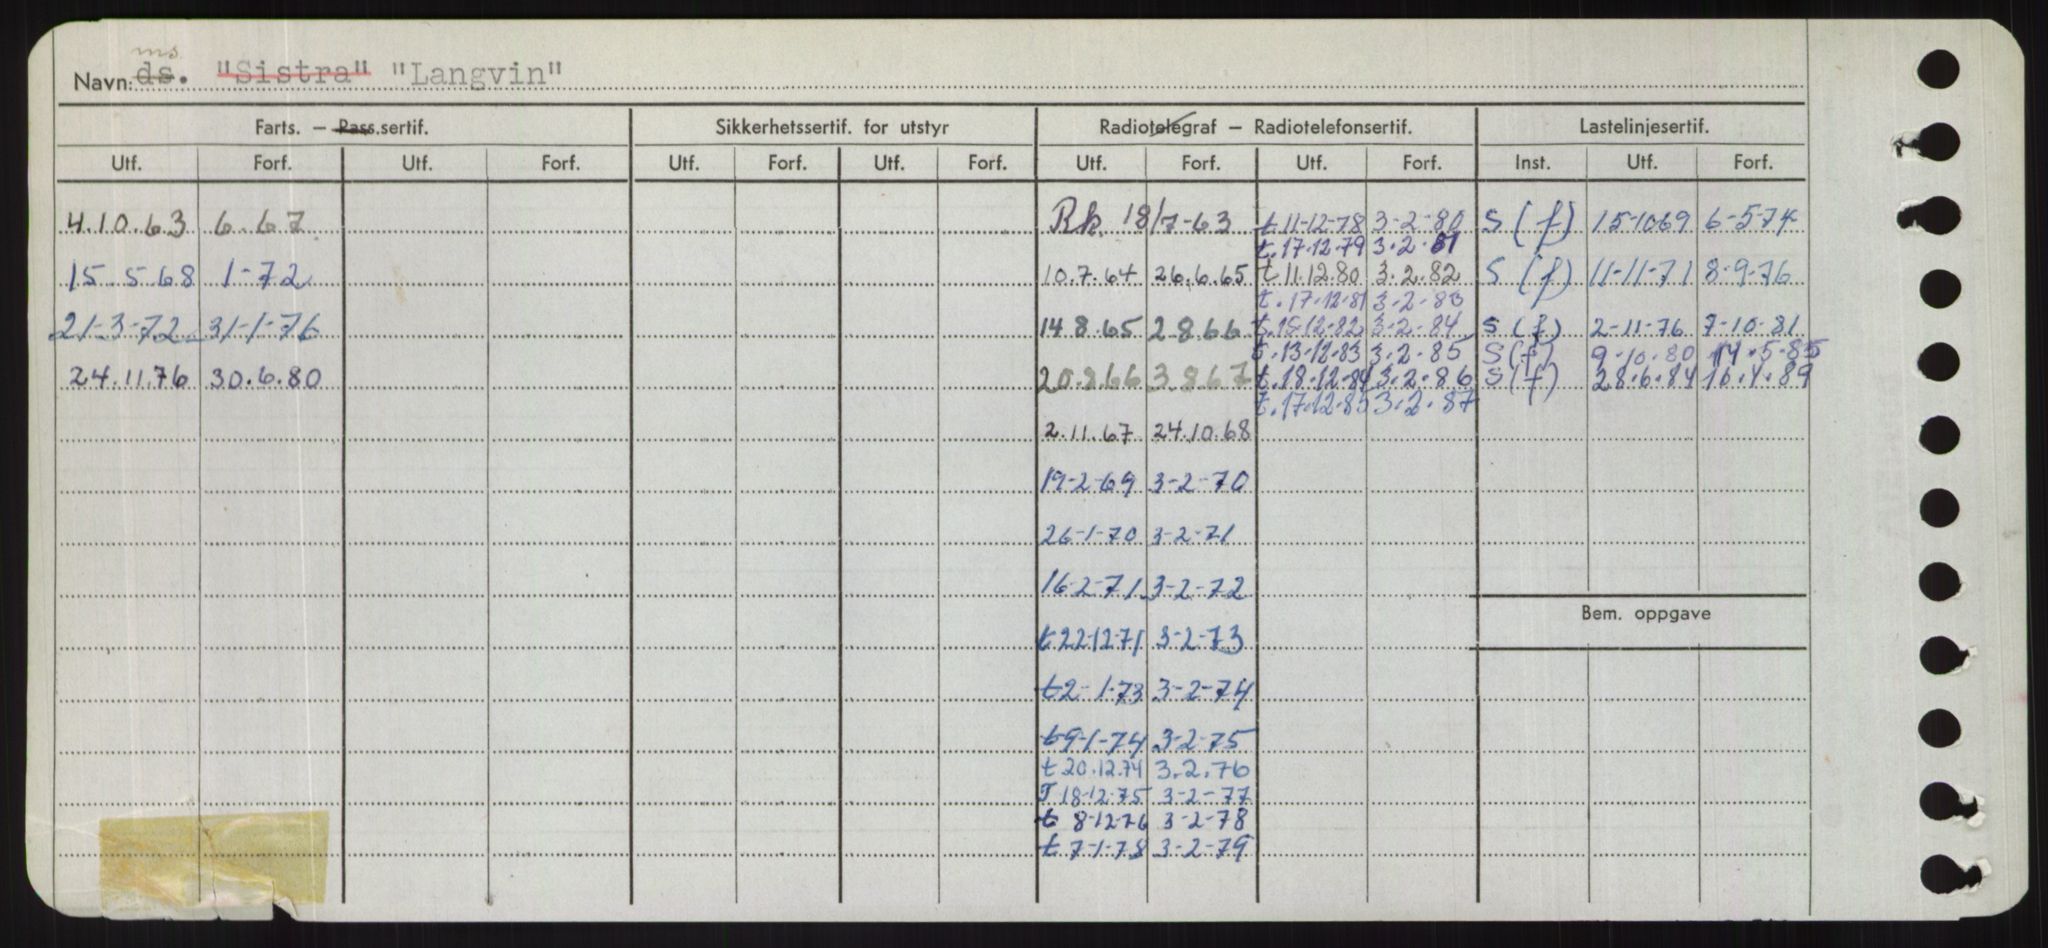 ms
Navn: ds. "Sistra" "Langvin"
Farts. — Pass.sertif. Sikkerhetssertif. for utstyr Radiotelegraf — Radiotelefonsertif. Lastelinjesertif.
Utf. Forf. Utf. Forf. Utf. Forf. Utf. Forf. Utf. Forf. Utf. Forf. Inst. Utf. Forf.
4.10.63 6.67 Rk. 18/7-63 t 11-12-78 3-2-80 S (f) 15-1069 6-5-74
t.17.12.79 3.2.81
15.5.68 1-72 10.7.64 26.6.65 t 11.12.80 3.2.82 S (f) 11-11-71 8-9-76
t.17.12.81 3-2-83
21-3-72 31-1-76 14.8.65 2.8.66 t.15.12.82 3-2-84 S (f) 2-11-76 7-10-81
t.13.12.83 3.2.85 S (f) 9.10.80 14.5.85
24.11.76 30.6.80 20.8.66 3.8.67 t.18.12.84 3.2.86 S (f) 28.6.84 16.4.89
t.17.12.85 3.2.87
2.11.67 24.10.68
19-2-69 3-2-70
26-1-70 3-2-71
16-2-71 3-2-72
Bem. oppgave
t 22-12-71 3-2-73
t 2-1-73 3-2-74
t 9-1-74 3-2-75
t 20.12.74 3.2.76
T 18-12-75 3-2-77
t 8-12-76 3-2-78
t 7-1-78 3-2-79